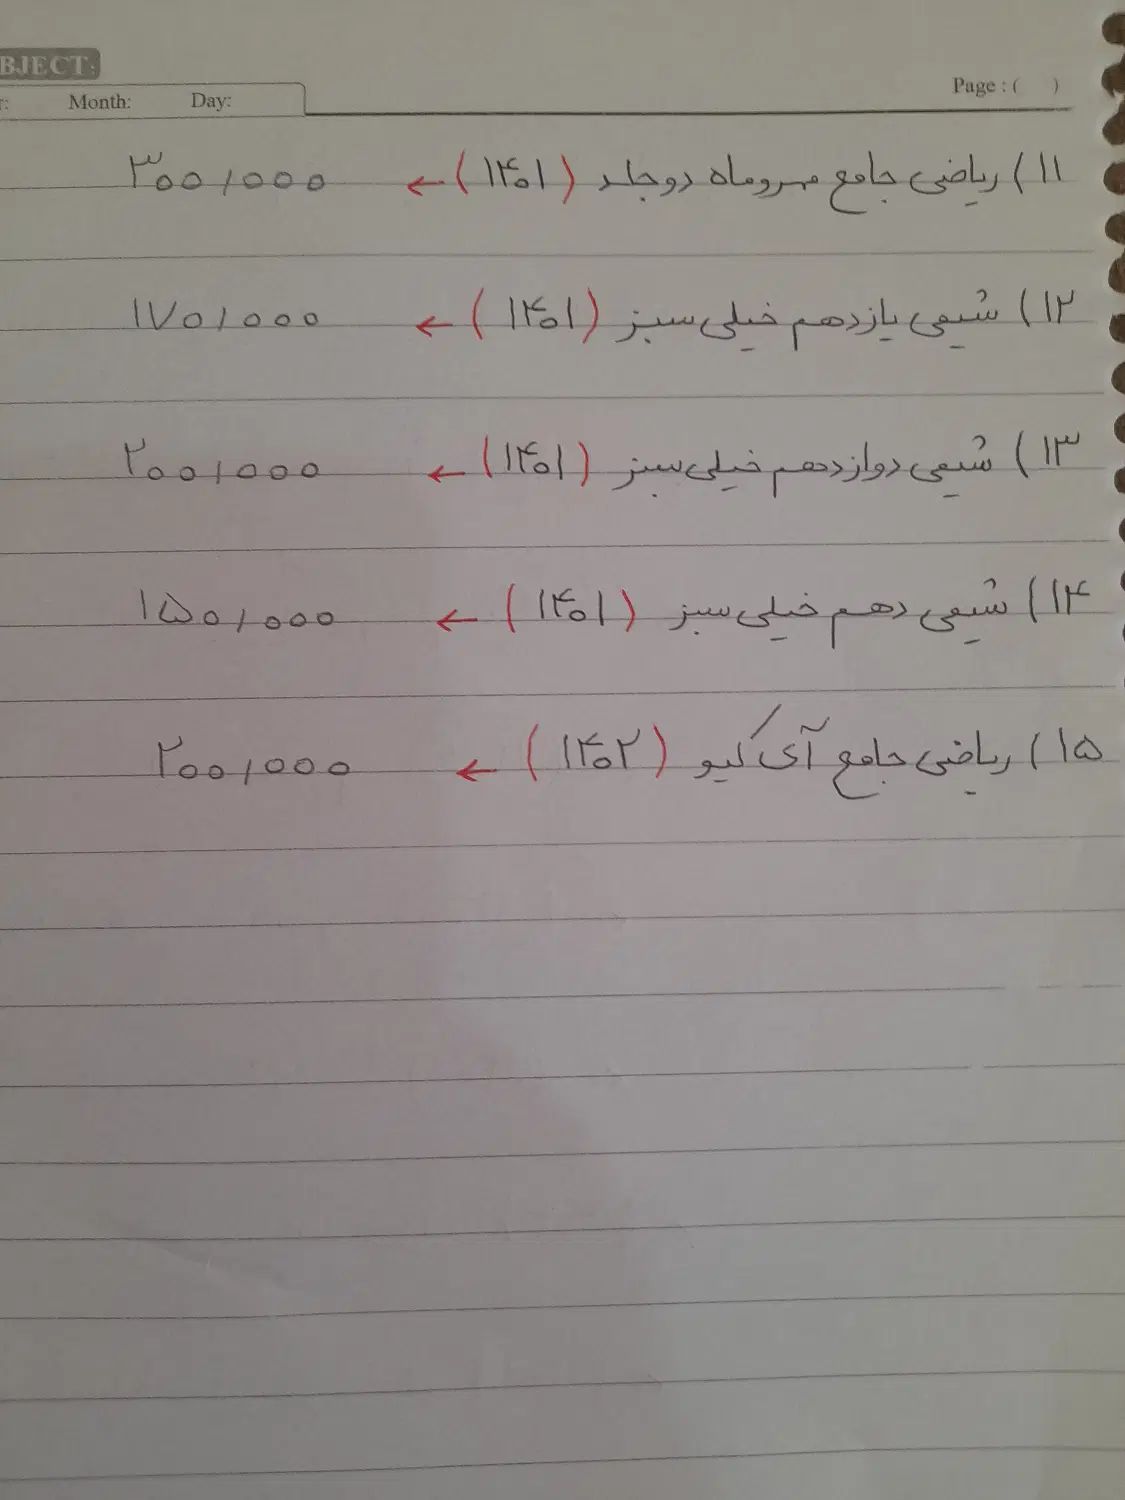 BJECT:
r: Month: Day:
Page : ( )
۱۱) ریاضی جامع مهروماه دوجلد (۱۴۰۱) ← ۳۰۰/۰۰۰
۱۲) شیمی یازدهم خیلی سبز (۱۴۰۱) ← ۱۷۰/۰۰۰
۱۳) شیمی دوازدهم خیلی سبز (۱۴۰۱) ← ۲۰۰/۰۰۰
۱۴) شیمی دهم خیلی سبز (۱۴۰۱) ← ۱۵۰/۰۰۰
۱۵) ریاضی جامع آی کیو (۱۴۰۲) ← ۲۰۰/۰۰۰